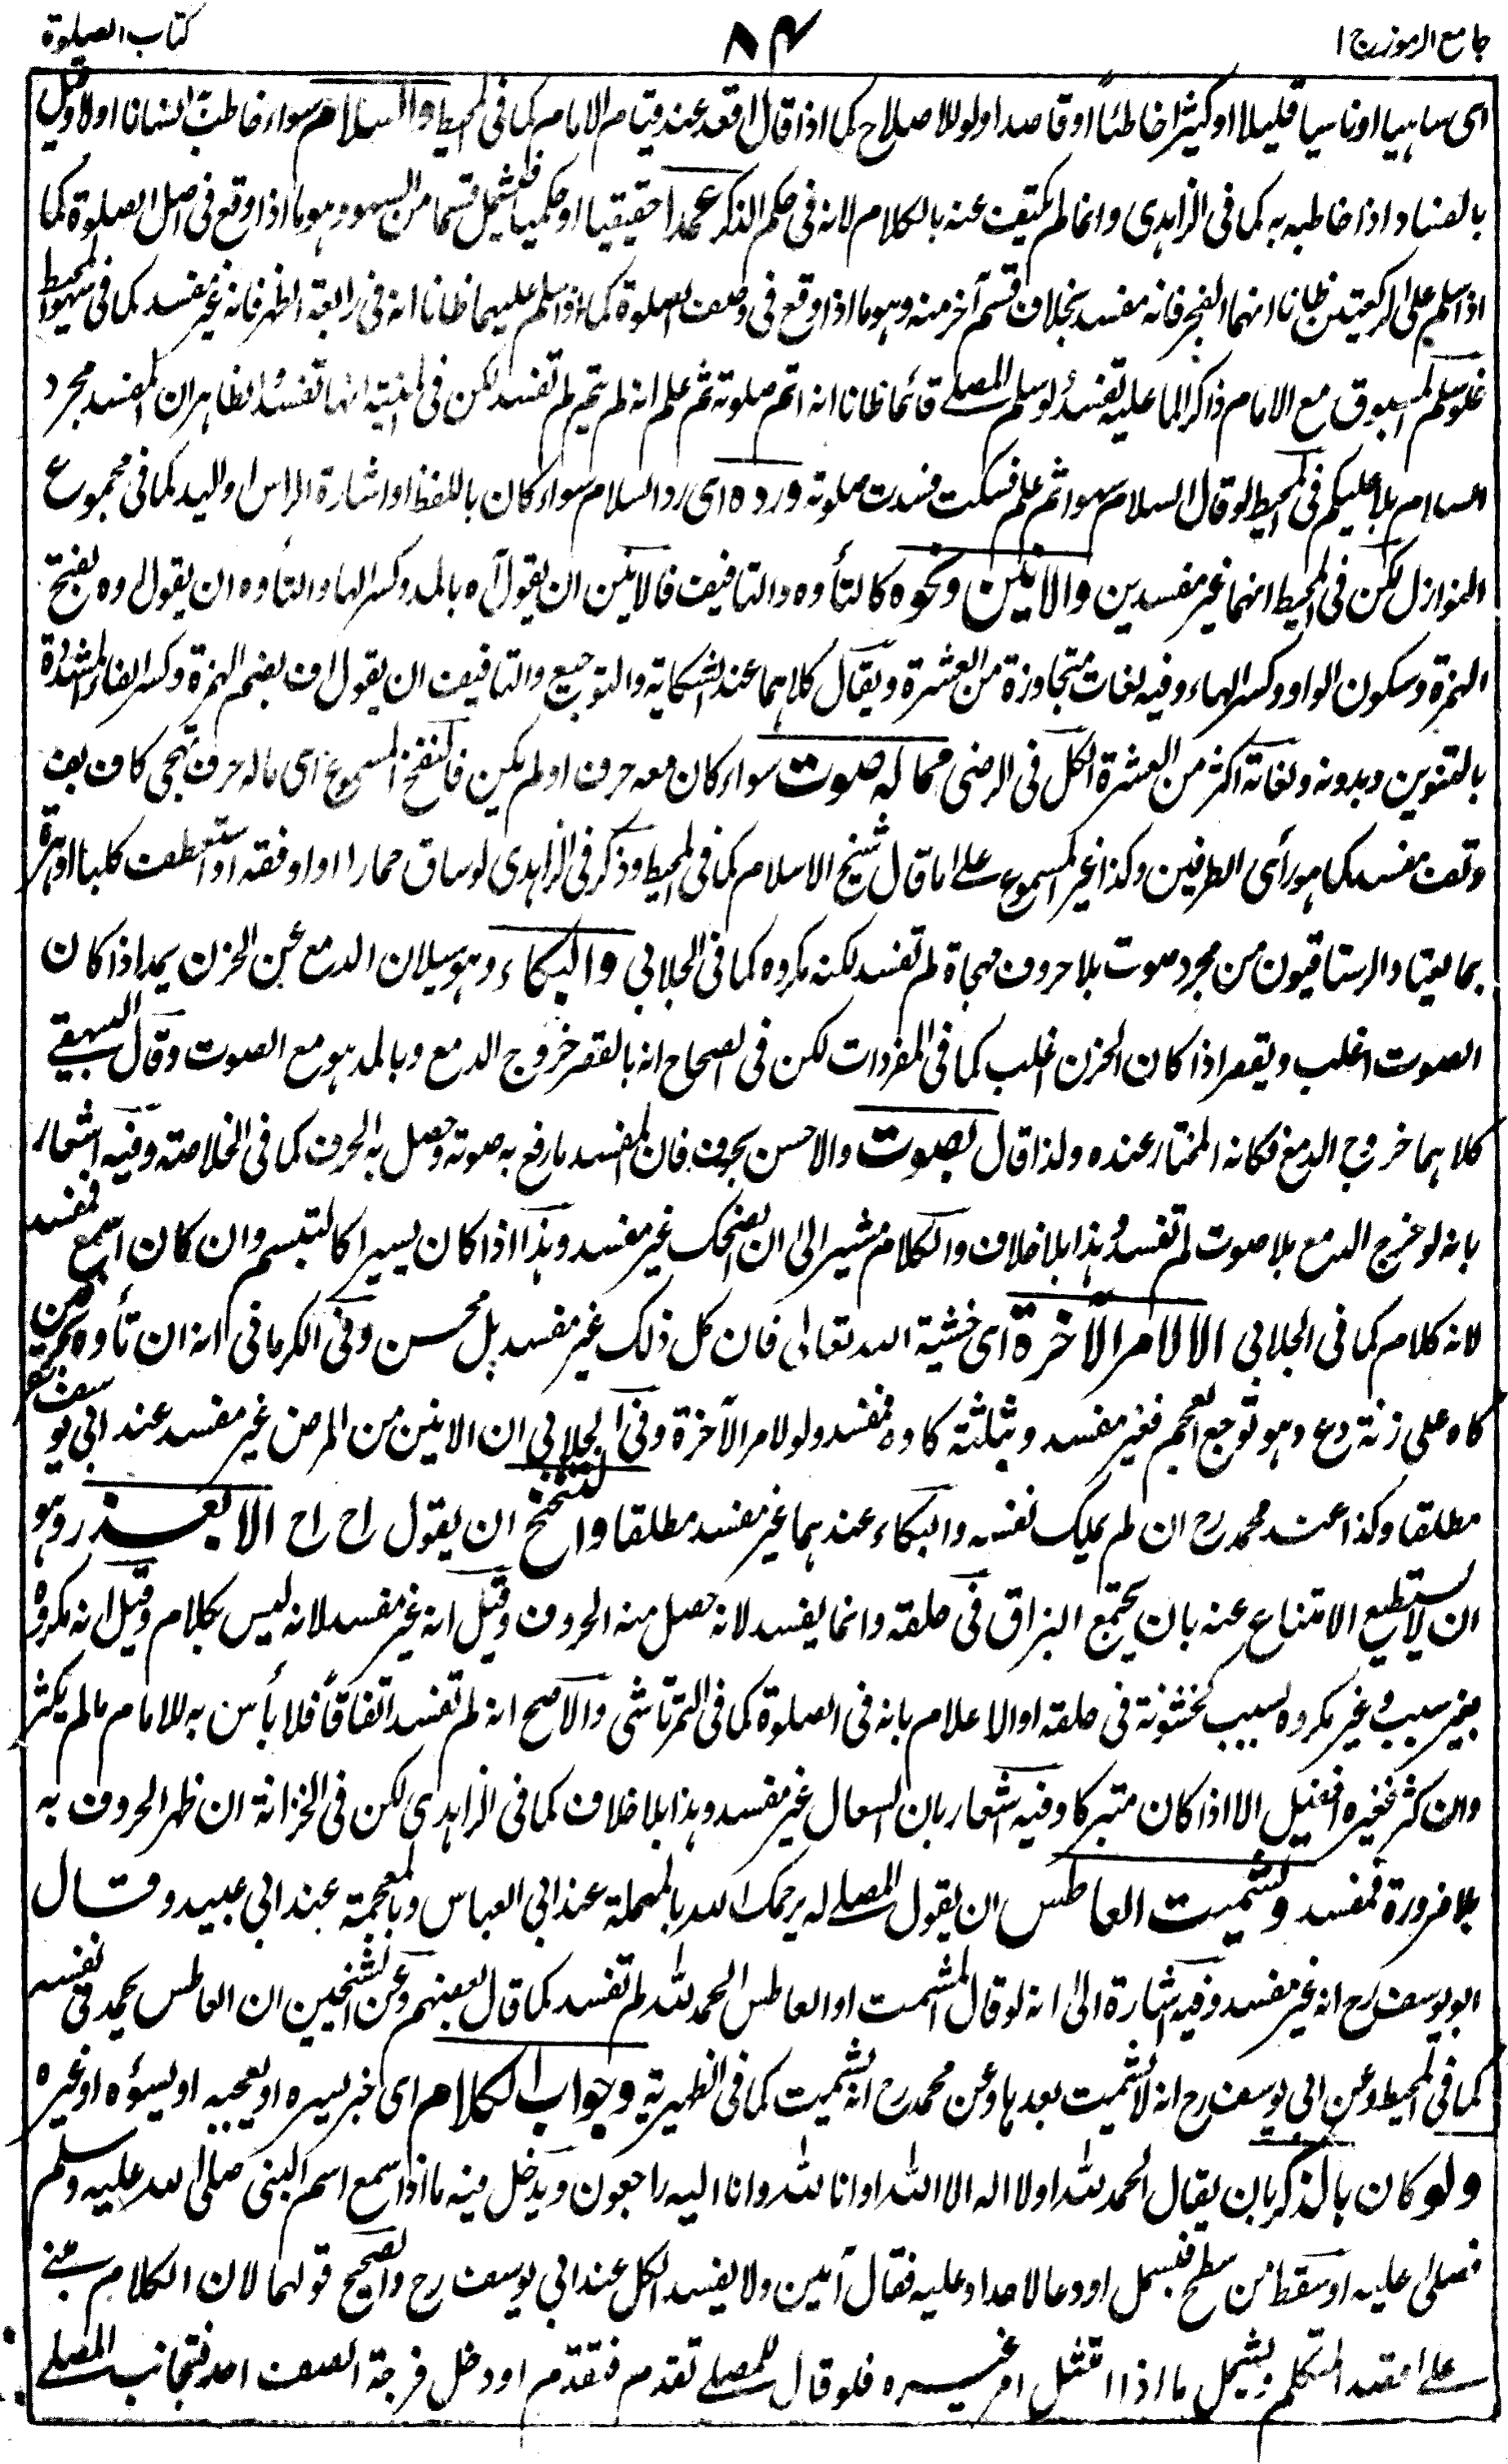 جامع الرموز ج ١
٨٤
كتاب الصلوة
اى ساهيا او ناسيا قليلا او كثيرا خاطئا او قاصدا ولو للاصلاح كما اذا قال اقعد عند قيام الامام كما فى المحيط والسلام سواء خاطب انسانا اولا وقيل
بالفساد اذا خاطبه به كما فى الزاهدى وانما لم يكتف عنه بالكلام لانه فى حكم الذكر عمدا حقيقيا او حكميا فيشمل قسما من السهو وهو ما اذا وقع فى اصل الصلوة كما
اذا سلم على الركعتين ظانا انهما الفجر فانه مفسد بخلاف قسم آخر منه وهو ما اذا وقع فى وصف الصلوة كما اذا سلم عليهما ظانا انه فى رابعة الظهر فانه غير مفسد كما فى سهو المحيط
فلو سلم المسبوق مع الامام ذاكرا لما عليه تفسد ولو سلم المصلے قائما ظانا انه اتم صلوته ثم علم انه لم يتم لم تفسد لكن فى المنية انها تفسد والظاهر ان المفسد مجرد
السلام بلا عليكم فى المحيط لو قال السلام سهوا ثم علم فسكت فسدت صلوته ورده اى رد السلام سواء كان باللفظ او اشارة الراس او اليد كما فى مجموع
النوازل لكن فى المحيط انهما غير مفسدين والانين ونحوه كالتأوه والتافيف فالانين ان يقول آه بالمد وكسر الهاء والتأوه ان يقول اوه بفتح
الهمزة وسكون الواو وكسر الهاء وفيه لغات متجاوزة من العشرة ويقال كلاهما عند الشكاية والتوجع والتافيف ان يقول اف بضم الهمزة وكسر الفاء المشددة
بالتنوين وبدونه ولغاته اكثر من العشرة الكل فى الرضى مما له صوت سواء كان معه حرف او لم يكن فالنفخ المسموع اى ما له حرف تهجى كاف بف
وتف مفسد كما هو رأى الطرفين وكذا غير المسموع على ما قال شيخ الاسلام كما فى المحيط وذكر فى الزاهدى لو ساق حمارا او اوقفه او استعطف كلبا او هرة
بما يعتاد الرستاقيون من مجرد صوت بلا حروف مهجاة لم تفسد لكنه مكروه كما فى الجلابى والبكاء وهو سيلان الدمع عن الحزن يمد اذا كان
الصوت اغلب ويقصر اذا كان الحزن اغلب كما فى المفردات لكن فى الصحاح انه بالقصر خروج الدمع وبالمد هو مع الصوت وقال البيهقے
كلاهما خروج الدمع فكانه المختار عنده ولذا قال بصوت والاحسن بحرف فان المفسد ما رفع به صوته وحصل به الحرف كما فى الخلاصة وفيه اشعار
بانه لو خرج الدمع بلا صوت لم تفسد وهذا بلا خلاف والكلام مشير الى ان الضحك غير مفسد وهذا اذا كان يسيرا كالتبسم وان كان اسمع فمفسد
لانه كلام كما فى الجلابى الا لامر الآخرة اى خشية الله تعالى فان كل ذلك غير مفسد بل محسن وفى الكرمانى انه ان تأوه بحرفين
كاه على زنة دع وهو توجع العجم فغير مفسد وبثلثة كاوه فمفسد ولو لامر الآخرة وفى الجلابى ان الانين من المرض غير مفسد عند ابى يوسف
مطلقا وكذا عند محمد رح ان لم يملك نفسه والبكاء عندهما غير مفسد مطلقا والتنحنح ان يقول اح اح الا بعذر وهو
ان لا يستطيع الامتناع عنه بان يجتمع البزاق فى حلقه وانما يفسد لانه حصل منه الحروف وقيل انه غير مفسد لانه ليس بكلام وقيل انه مكروه
بغير سبب وغير مكروه بسبب كخشونة فى حلقه او الاعلام بانه فى الصلوة كما فى التمرتاشى والاصح انه لم تفسد اتفاقا فلا بأس به للامام ما لم يكثر
وان كثر فغيره افضل الا اذا كان متبركا وفيه اشعار بان السعال غير مفسد وهذا بلا خلاف كما فى الزاهدى لكن فى الخزانة ان ظهر الحروف به
بلا ضرورة فمفسد وتشميت العاطس ان يقول المصلے له يرحمك الله بالمهملة عند ابى العباس وبالمعجمة عند ابى عبيد وقال
ابو يوسف رح انه غير مفسد وفيه اشارة الى انه لو قال المشمت او العاطس الحمد لله لم تفسد كما قال بعضهم وعن الشيخين ان العاطس يحمد فى نفسه
كما فى المحيط وعن ابى يوسف رح انه لا تشميت بعدها وعن محمد رح انه تشميت كما فى الظهيرية وجواب الكلام اى خبر يسره او يعجبه او يسوؤه او غيره
ولو كان بالذكر بان يقال الحمد لله او لا اله الا الله او انا لله وانا اليه راجعون ويدخل فيه ما اذا سمع اسم النبى صلى الله عليه وسلم
فصلى عليه او سقط من سطح فبسمل او دعا لاحد او عليه فقال آمين ولا يفسد الكل عند ابى يوسف رح والصحيح قولهما لان الكلام مبنے
علے قصد المتكلم ويشمل ما اذا امتثل امر غيره فلو قال للمصلے تقدم فتقدم او دخل فرجة الصف احد فتجانب المصلے